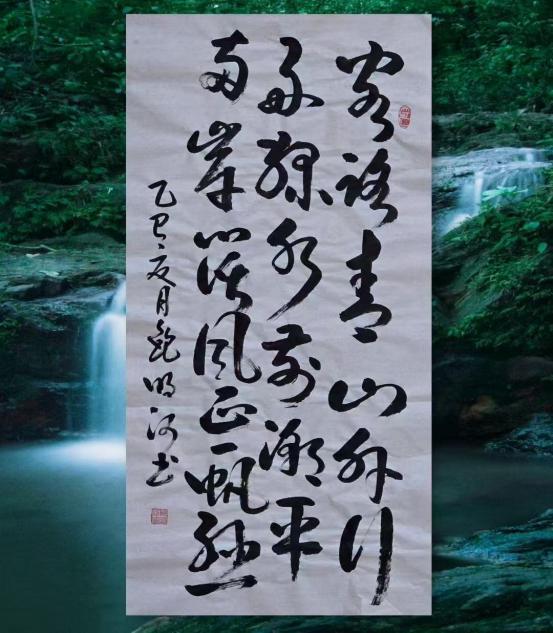 客路青山外行
舟绿水前潮平
两岸阔风正一帆悬
乙巳夏月鲍明河书